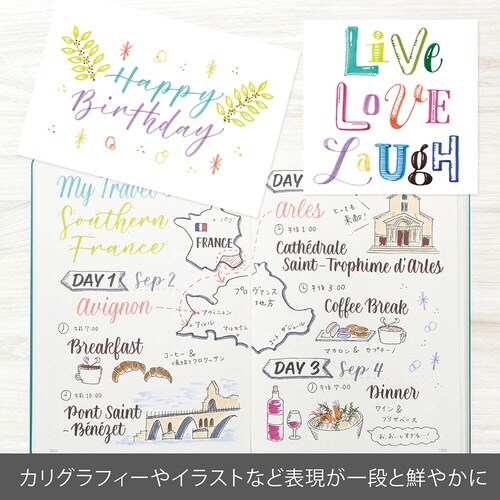 Happy
Birthday
LiVe
LOVE
LaUGH
My Travel
Southern
France
DAY 1 Sep 2
Avignon
午前 7:00
Breakfast
コーヒー &
焼立てクロワッサン
午前 10:00
Pont Saint-
Bénézet
パリ
FRANCE
プロヴァンス
地方
アヴィニョン
アルル
マルセイユ
コートダジュール
DAY
Arles
とっても
素敵!
午後 1:00
Cathédrale
Saint-Trophime d'Arles
午後 3:00
Coffee Break
マカロン & カプチーノ
DAY 3 Sep 4
午後 7:00
Dinner
ワイン &
ブイヤベース
おいしすぎる〜!
カリグラフィーやイラストなど表現が一段と鮮やかに